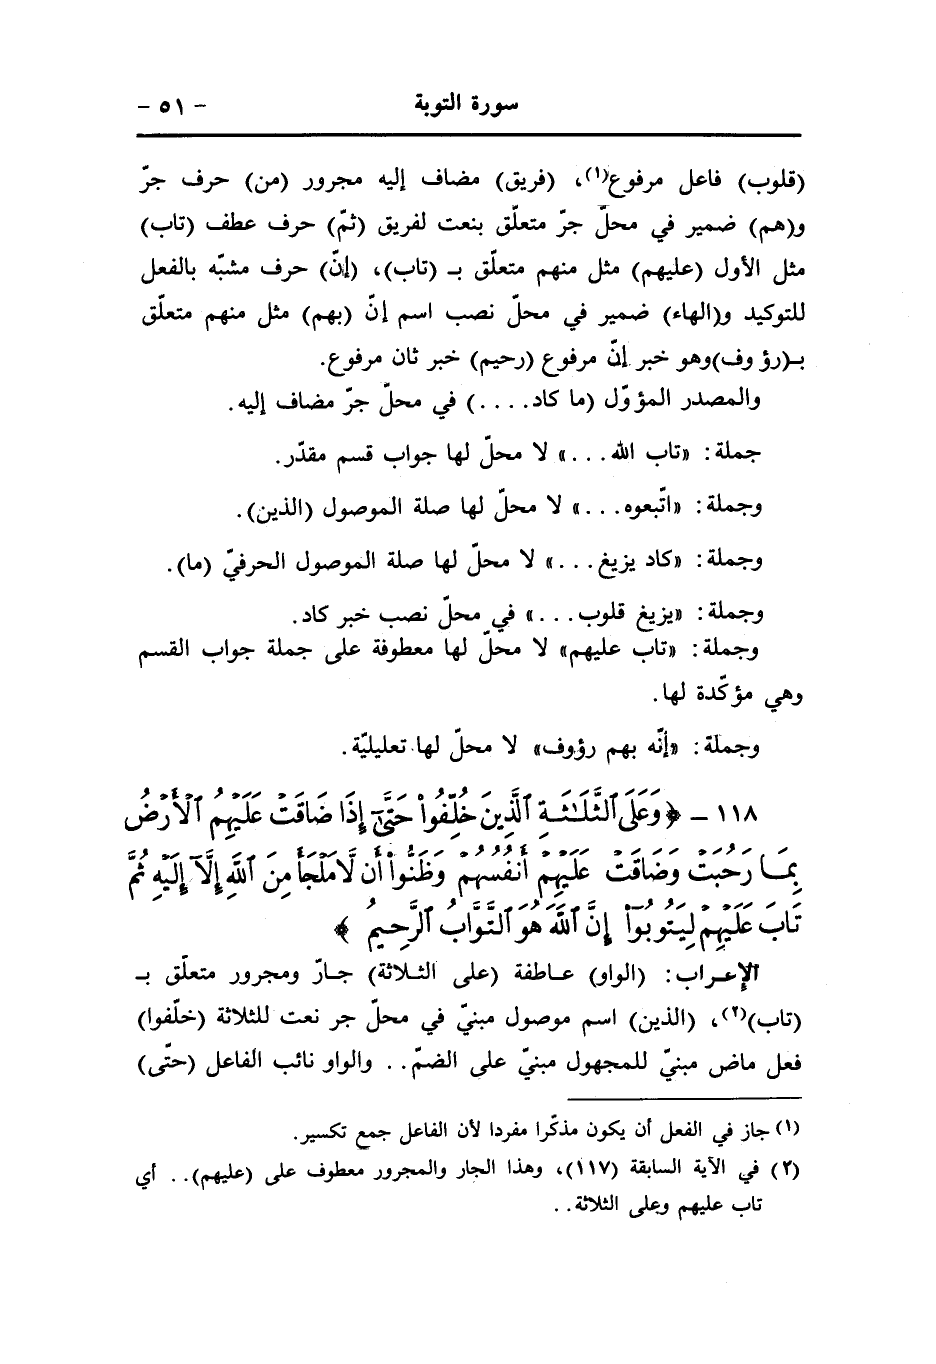 سورة التوبة - ٥١ -
(قلوب) فاعل مرفوع(١)، (فريق) مضاف إليه مجرور (من) حرف جرّ
و(هم) ضمير في محلّ جرّ متعلّق بنعت لفريق (ثمّ) حرف عطف (تاب)
مثل الأول (عليهم) مثل منهم متعلّق بـ (تاب)، (إنّ) حرف مشبّه بالفعل
للتوكيد و(الهاء) ضمير في محلّ نصب اسم إنّ (بهم) مثل منهم متعلّق
بـ(رؤوف)وهو خبر إنّ مرفوع (رحيم) خبر ثان مرفوع.
والمصدر المؤوّل (ما كاد....) في محلّ جرّ مضاف إليه.
جملة: «تاب الله...» لا محلّ لها جواب قسم مقدّر.
وجملة: «اتّبعوه...» لا محلّ لها صلة الموصول (الذين).
وجملة: «كاد يزيغ...» لا محلّ لها صلة الموصول الحرفيّ (ما).
وجملة: «يزيغ قلوب...» في محلّ نصب خبر كاد.
وجملة: «تاب عليهم» لا محلّ لها معطوفة على جملة جواب القسم
وهي مؤكّدة لها.
وجملة: «إنّه بهم رؤوف» لا محلّ لها تعليليّة.
١١٨ - ﴿وَعَلَى ٱلثَّلَٰثَةِ ٱلَّذِينَ خُلِّفُوا۟ حَتَّىٰٓ إِذَا ضَاقَتْ عَلَيْهِمُ ٱلْأَرْضُ
بِمَا رَحُبَتْ وَضَاقَتْ عَلَيْهِمْ أَنفُسُهُمْ وَظَنُّوٓا۟ أَن لَّا مَلْجَأَ مِنَ ٱللَّهِ إِلَّآ إِلَيْهِ ثُمَّ
تَابَ عَلَيْهِمْ لِيَتُوبُوٓا۟ إِنَّ ٱللَّهَ هُوَ ٱلتَّوَّابُ ٱلرَّحِيمُ ﴾
الإعراب: (الواو) عاطفة (على الثلاثة) جارّ ومجرور متعلّق بـ
(تاب)(٢)، (الذين) اسم موصول مبنيّ في محلّ جر نعت للثلاثة (خلّفوا)
فعل ماض مبنيّ للمجهول مبنيّ على الضمّ.. والواو نائب الفاعل (حتّى)
(١) جاز في الفعل أن يكون مذكّرا مفردا لأن الفاعل جمع تكسير.
(٢) في الآية السابقة (١١٧)، وهذا الجار والمجرور معطوف على (عليهم).. أي
تاب عليهم وعلى الثلاثة..